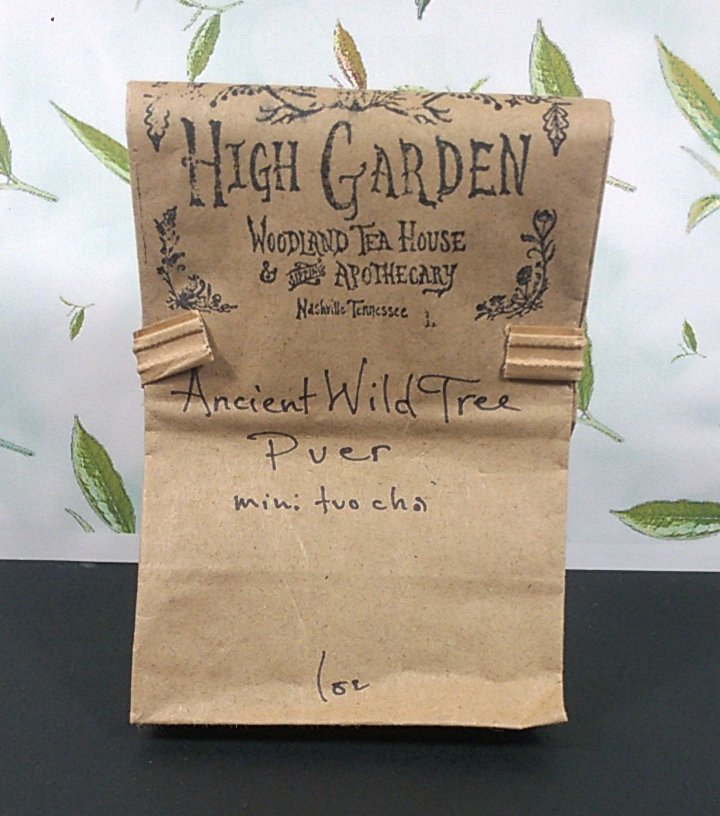 HIGH GARDEN
WOODLAND TEA HOUSE
& SIPPING APOTHECARY
Nashville Tennessee
Ancient Wild Tree
Puer
mini tuo cha
1oz